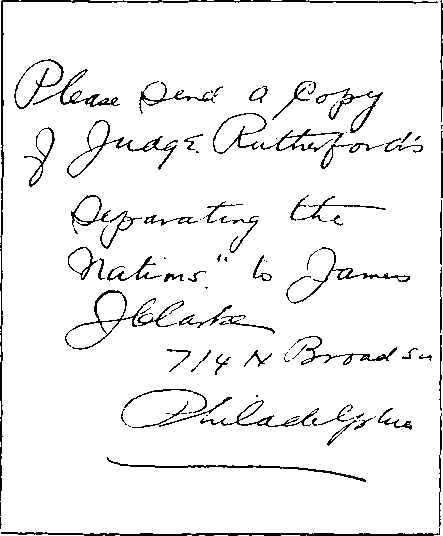 Please send a Copy
of Judge Rutherford's
Separating the
Nations." to James
J Clarke
714 N Broad St
Philadelphia